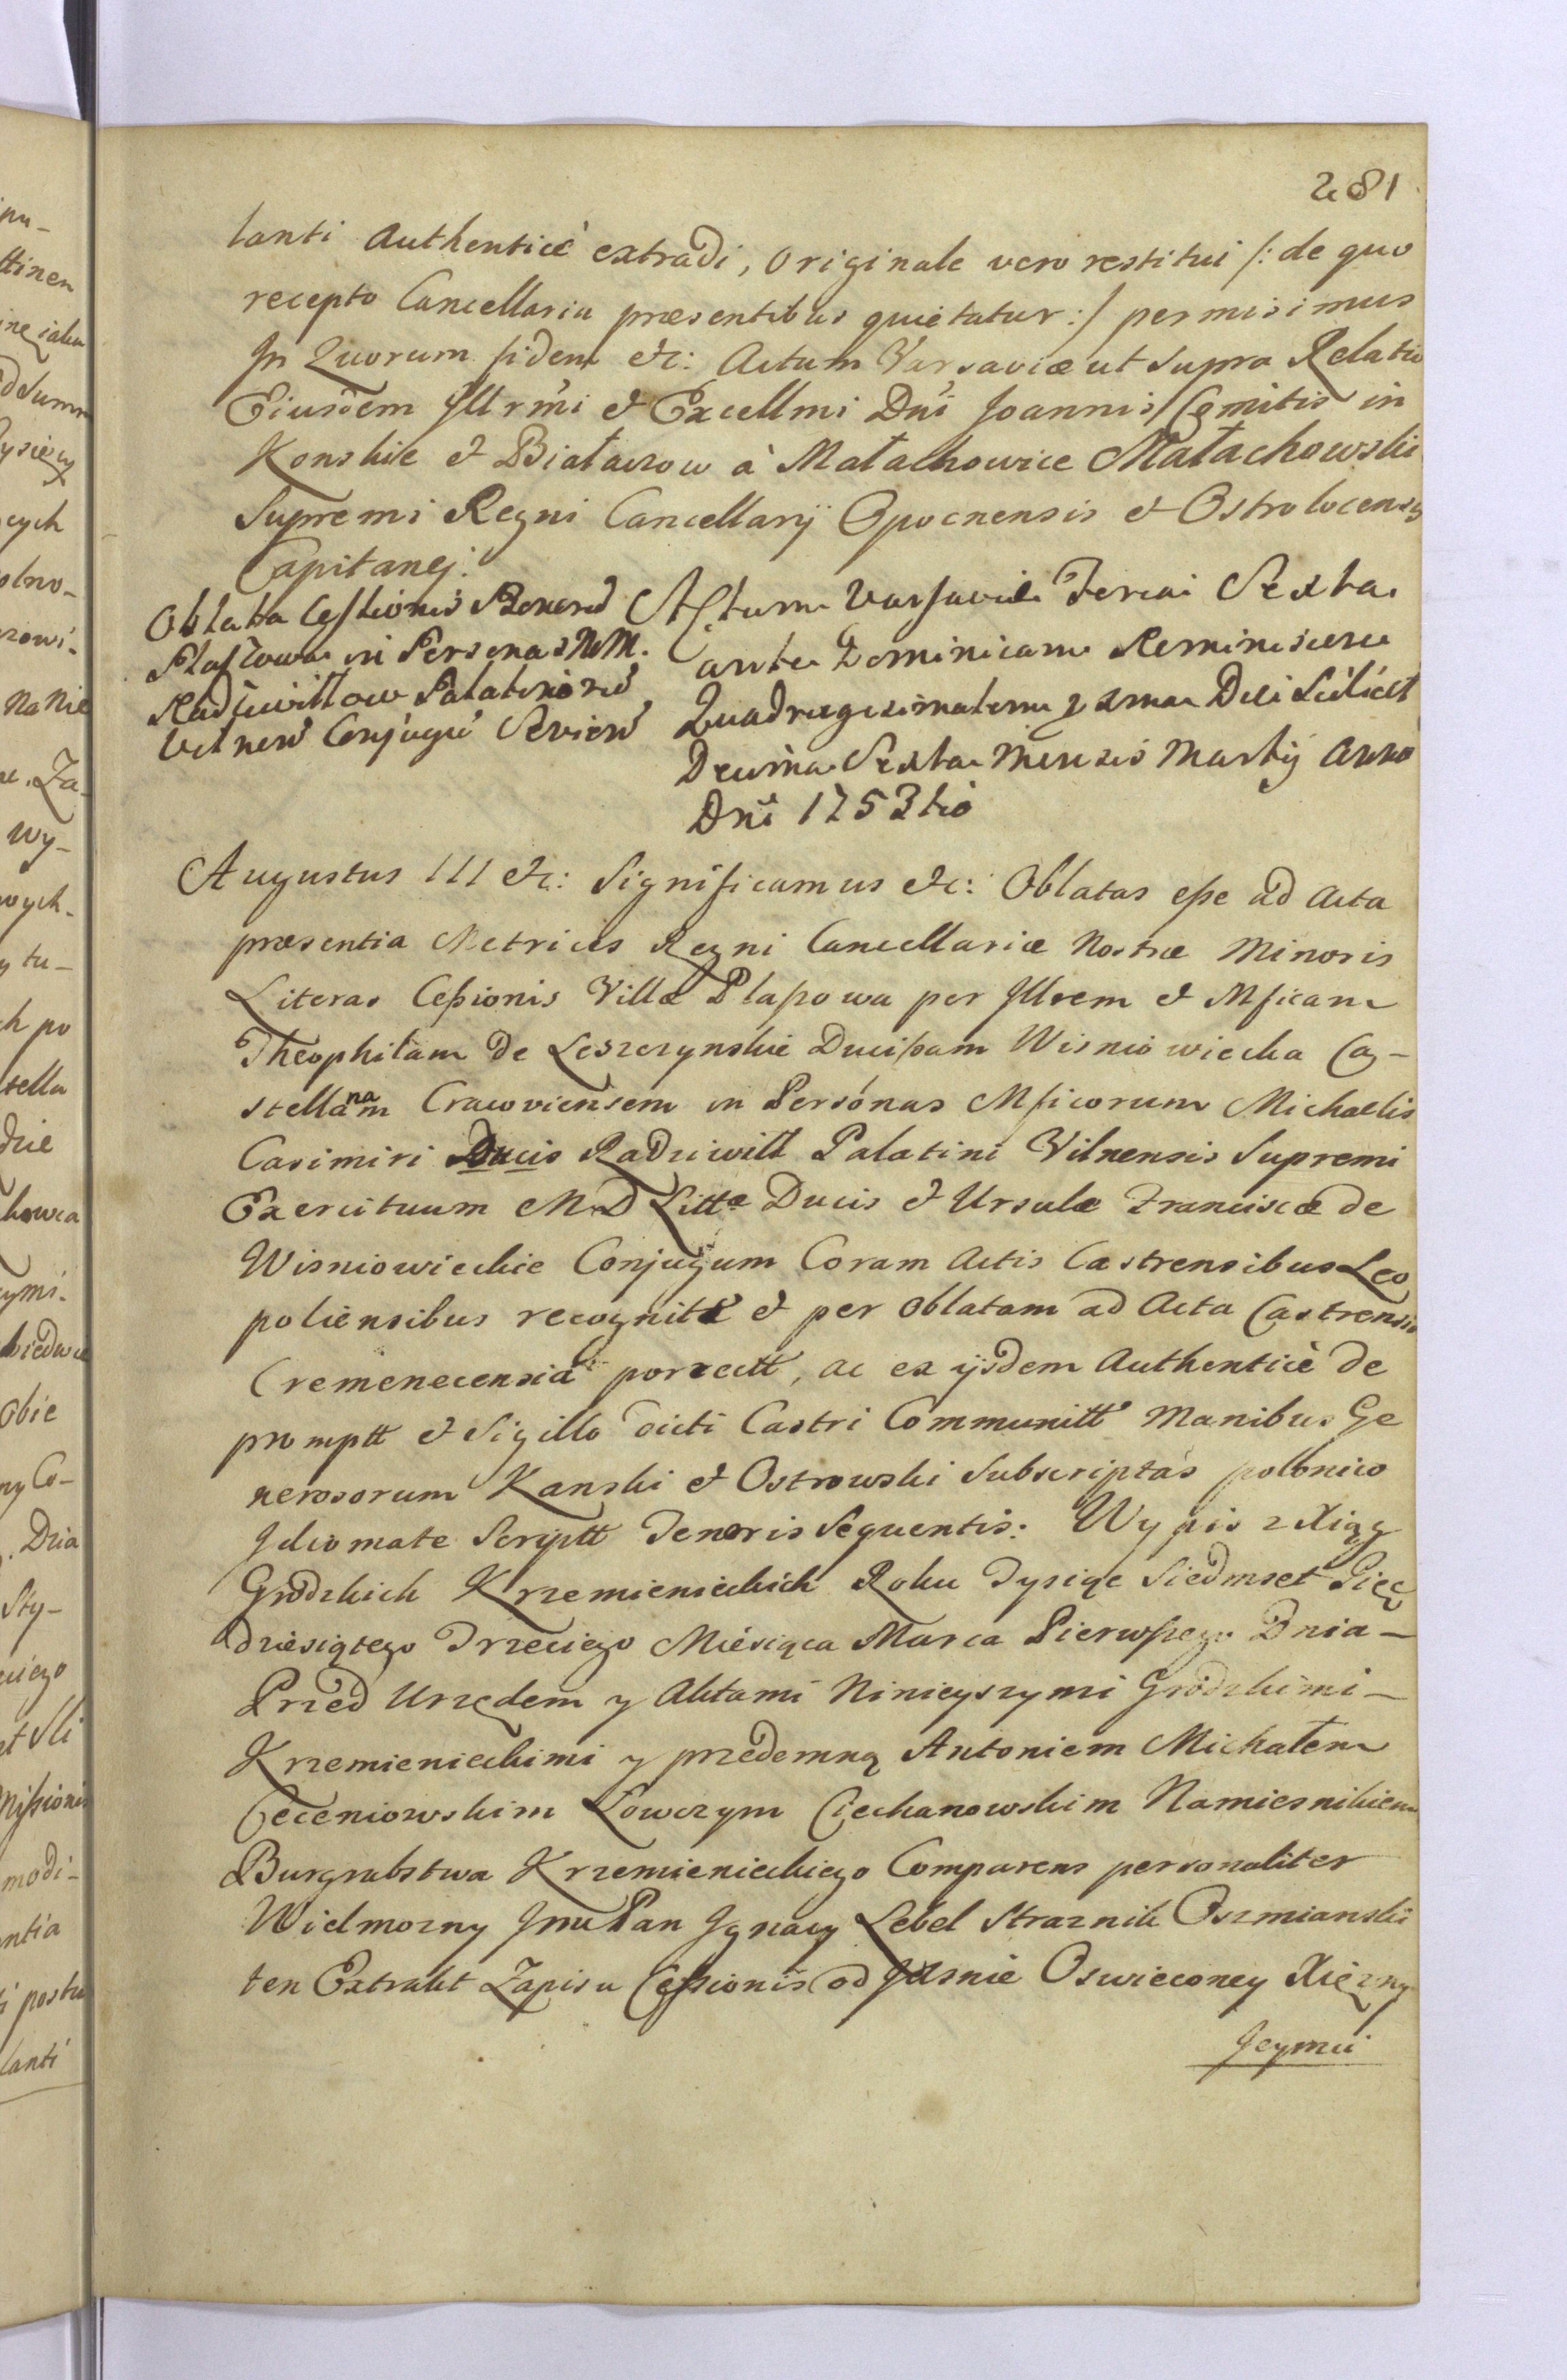 281
lanti Authenticè extradi, Originale vero restitui /: de quo
recepto Cancellaria præsentibus quietatur :/ permisimus
In Quorum fidem etc: Actum Varsaviæ ut Supra Relatio
Eiusdem Illrmi et Excellmi Dni Joannis Comitis in
Konskie et Białaczow à Małachowice Małachowski
Supremi Regni Cancellarij Opocnensis et Ostrolocensis
Capitanej.
Oblata Cessionis Bonorũ
Plaszowa in Personas MM.
Radziwiłłow Palatinorũ
Vilnen Conjugũ Servien
Actum Varsaviæ Feria Sexta
ante Dominicam Reminiscere
Quadragesimalem 2dma Die Scilicet
Decima Sexta Mensis Martij Anno
Dni 1753tio
Augustus III etc: Significamus etc: Oblatas esse ad Acta
præsentia Metrices Regni Cancellariæ Nostræ Minoris
Literas Cessionis Villæ Plaszowa per Illrem et Mficam
Theophilam de Leszczynskie Ducissam Wisniowiecka Ca-
stellanam Cracoviensem in Personas Mficorum Michaelis
Casimiri Ducis Radziwiłł Palatini Vilnensis Supremi
Exercituum M D Littæ Ducis et Ursulæ Franciscæ de
Wisniowieckie Conjugum Coram Actis Castrensibus Leo
poliensibus recognitt et per Oblatam ad Acta Castrensia
Cremenecensia porrectt, ac ex ijsdem Authenticè de
promptt et Sigillo dicti Castri Communitt Manibus Ge
nerosorum Kanski et Ostrowski Subscriptas polonico
Idiomate Scriptt Tenoris Sequentis: Wypis z Xiąg
Grodzkich Krzemienieckich Roku Tysiąc Siedmset Pięc
dziesiątego Trzeciego Miesiąca Marca Pierwszego Dnia -
Przed Urzędem y Aktami Ninieyszymi Grodzkimi -
Krzemienieckimi y przedemną Antoniem Michałem
Ceceniowskim Łowczym Ciechanowskim Namiesnikiem
Burgrabstwa Krzemienieckiego Comparens personaliter
Wielmozny Jmć Pan Ignacy Lebel Straznik Oszmianski
ten Extrakt Zapisu Cessionis od Jasnie Oswieconey Xięzny
Jeymci